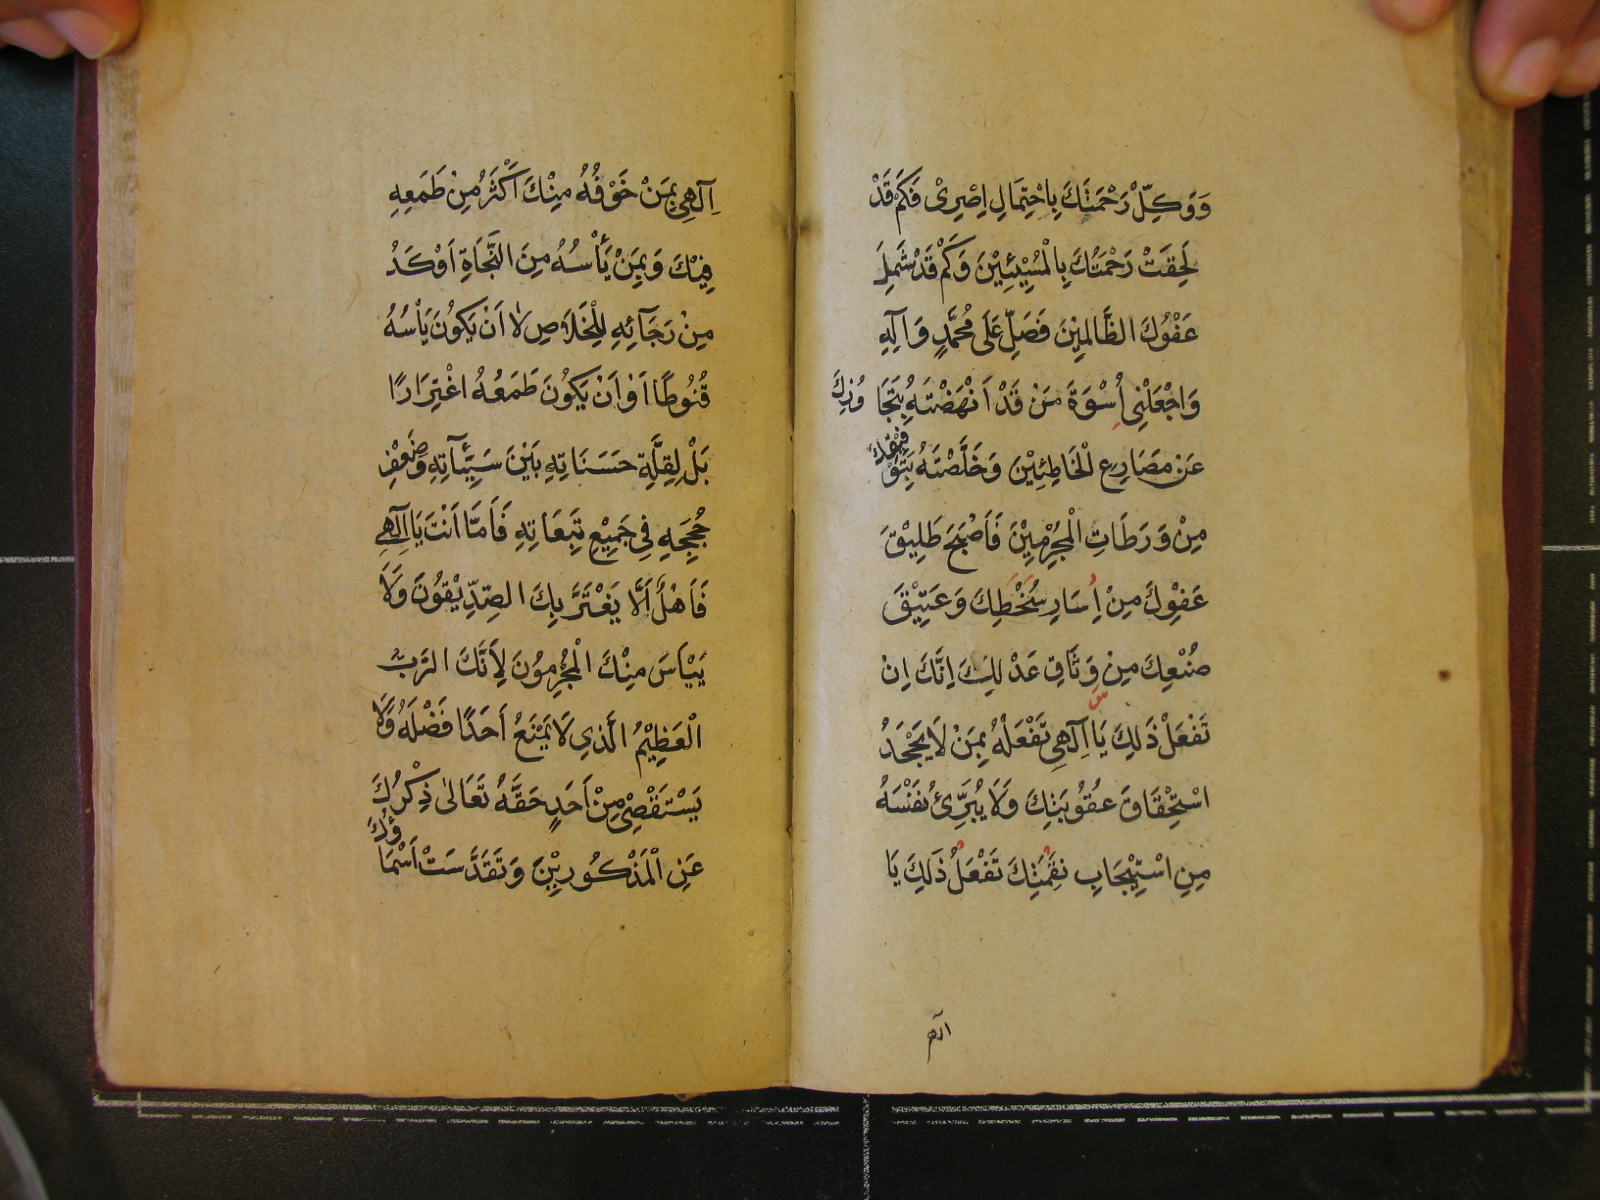 وَوَكِّلْ رَحْمَتَكَ بِاحْتِمَالِ اِصْرِىْ فَكَمْ قَدْ
لَحِقَتْ رَحْمَتُكَ بِالْمُسِيْئِيْنَ وَكَمْ قَدْ شَمِلَ
عَفْوُكَ الظَّالِمِيْنَ فَصَلِّ عَلَى مُحَمَّدٍ وَآلِهِ
وَاجْعَلْنِى اُسْوَةَ مَنْ قَدْ اَنْهَضْتَهُ بِتَجَاوُزِكَ
عَنْ مَصَارِعِ الْخَاطِئِيْنَ وَخَلَّصْتَهُ بِتَوْفِيْقِكَ
مِنْ وَرَطَاتِ الْمُجْرِمِيْنَ فَاَصْبَحَ طَلِيْقَ
عَفْوِكَ مِنْ اِسَارِ سُخْطِكَ وَعَتِيْقَ
صُنْعِكَ مِنْ وَثَاقِ عَدْلِكَ اِنَّكَ اِنْ
تَفْعَلْ ذَلِكَ يَا اِلٰهِى تَفْعَلْهُ بِمَنْ لَا يَجْحَدُ
اسْتِحْقَاقَ عُقُوْبَتِكَ وَلَا يُبَرِّئُ نَفْسَهُ
مِنِ اسْتِيْجَابِ نِقْمَتِكَ تَفْعَلُ ذَلِكَ يَا
اِلٰهِى بِمَنْ خَوْفُهُ مِنْكَ اَكْثَرُ مِنْ طَمَعِهِ
فِيْكَ وَبِمَنْ يَأْسُهُ مِنَ النَّجَاةِ اَوْكَدُ
مِنْ رَجَآئِهِ لِلْخَلَاصِ لَا اَنْ يَكُوْنَ يَأْسُهُ
قُنُوْطًا اَوْ اَنْ يَكُوْنَ طَمَعُهُ اغْتِرَارًا
بَلْ لِقِلَّةِ حَسَنَاتِهِ بَيْنَ سَيِّئَاتِهِ وَضَعْفِ
حُجَجِهِ فِى جَمِيْعِ تَبِعَاتِهِ فَاَمَّا اَنْتَ يَا اِلٰهِى
فَاَهْلٌ اَلَّا يَغْتَرَّ بِكَ الصِّدِّيْقُوْنَ وَلَا
يَيْاَسَ مِنْكَ الْمُجْرِمُوْنَ لِاَنَّكَ الرَّبُّ
الْعَظِيْمُ الَّذِى لَا يَمْنَعُ اَحَدًا فَضْلَهُ وَلَا
يَسْتَقْصِىْ مِنْ اَحَدٍ حَقَّهُ تَعَالٰى ذِكْرُكَ
عَنِ الْمَذْكُوْرِيْنَ وَتَقَدَّسَتْ اَسْمَاؤُكَ